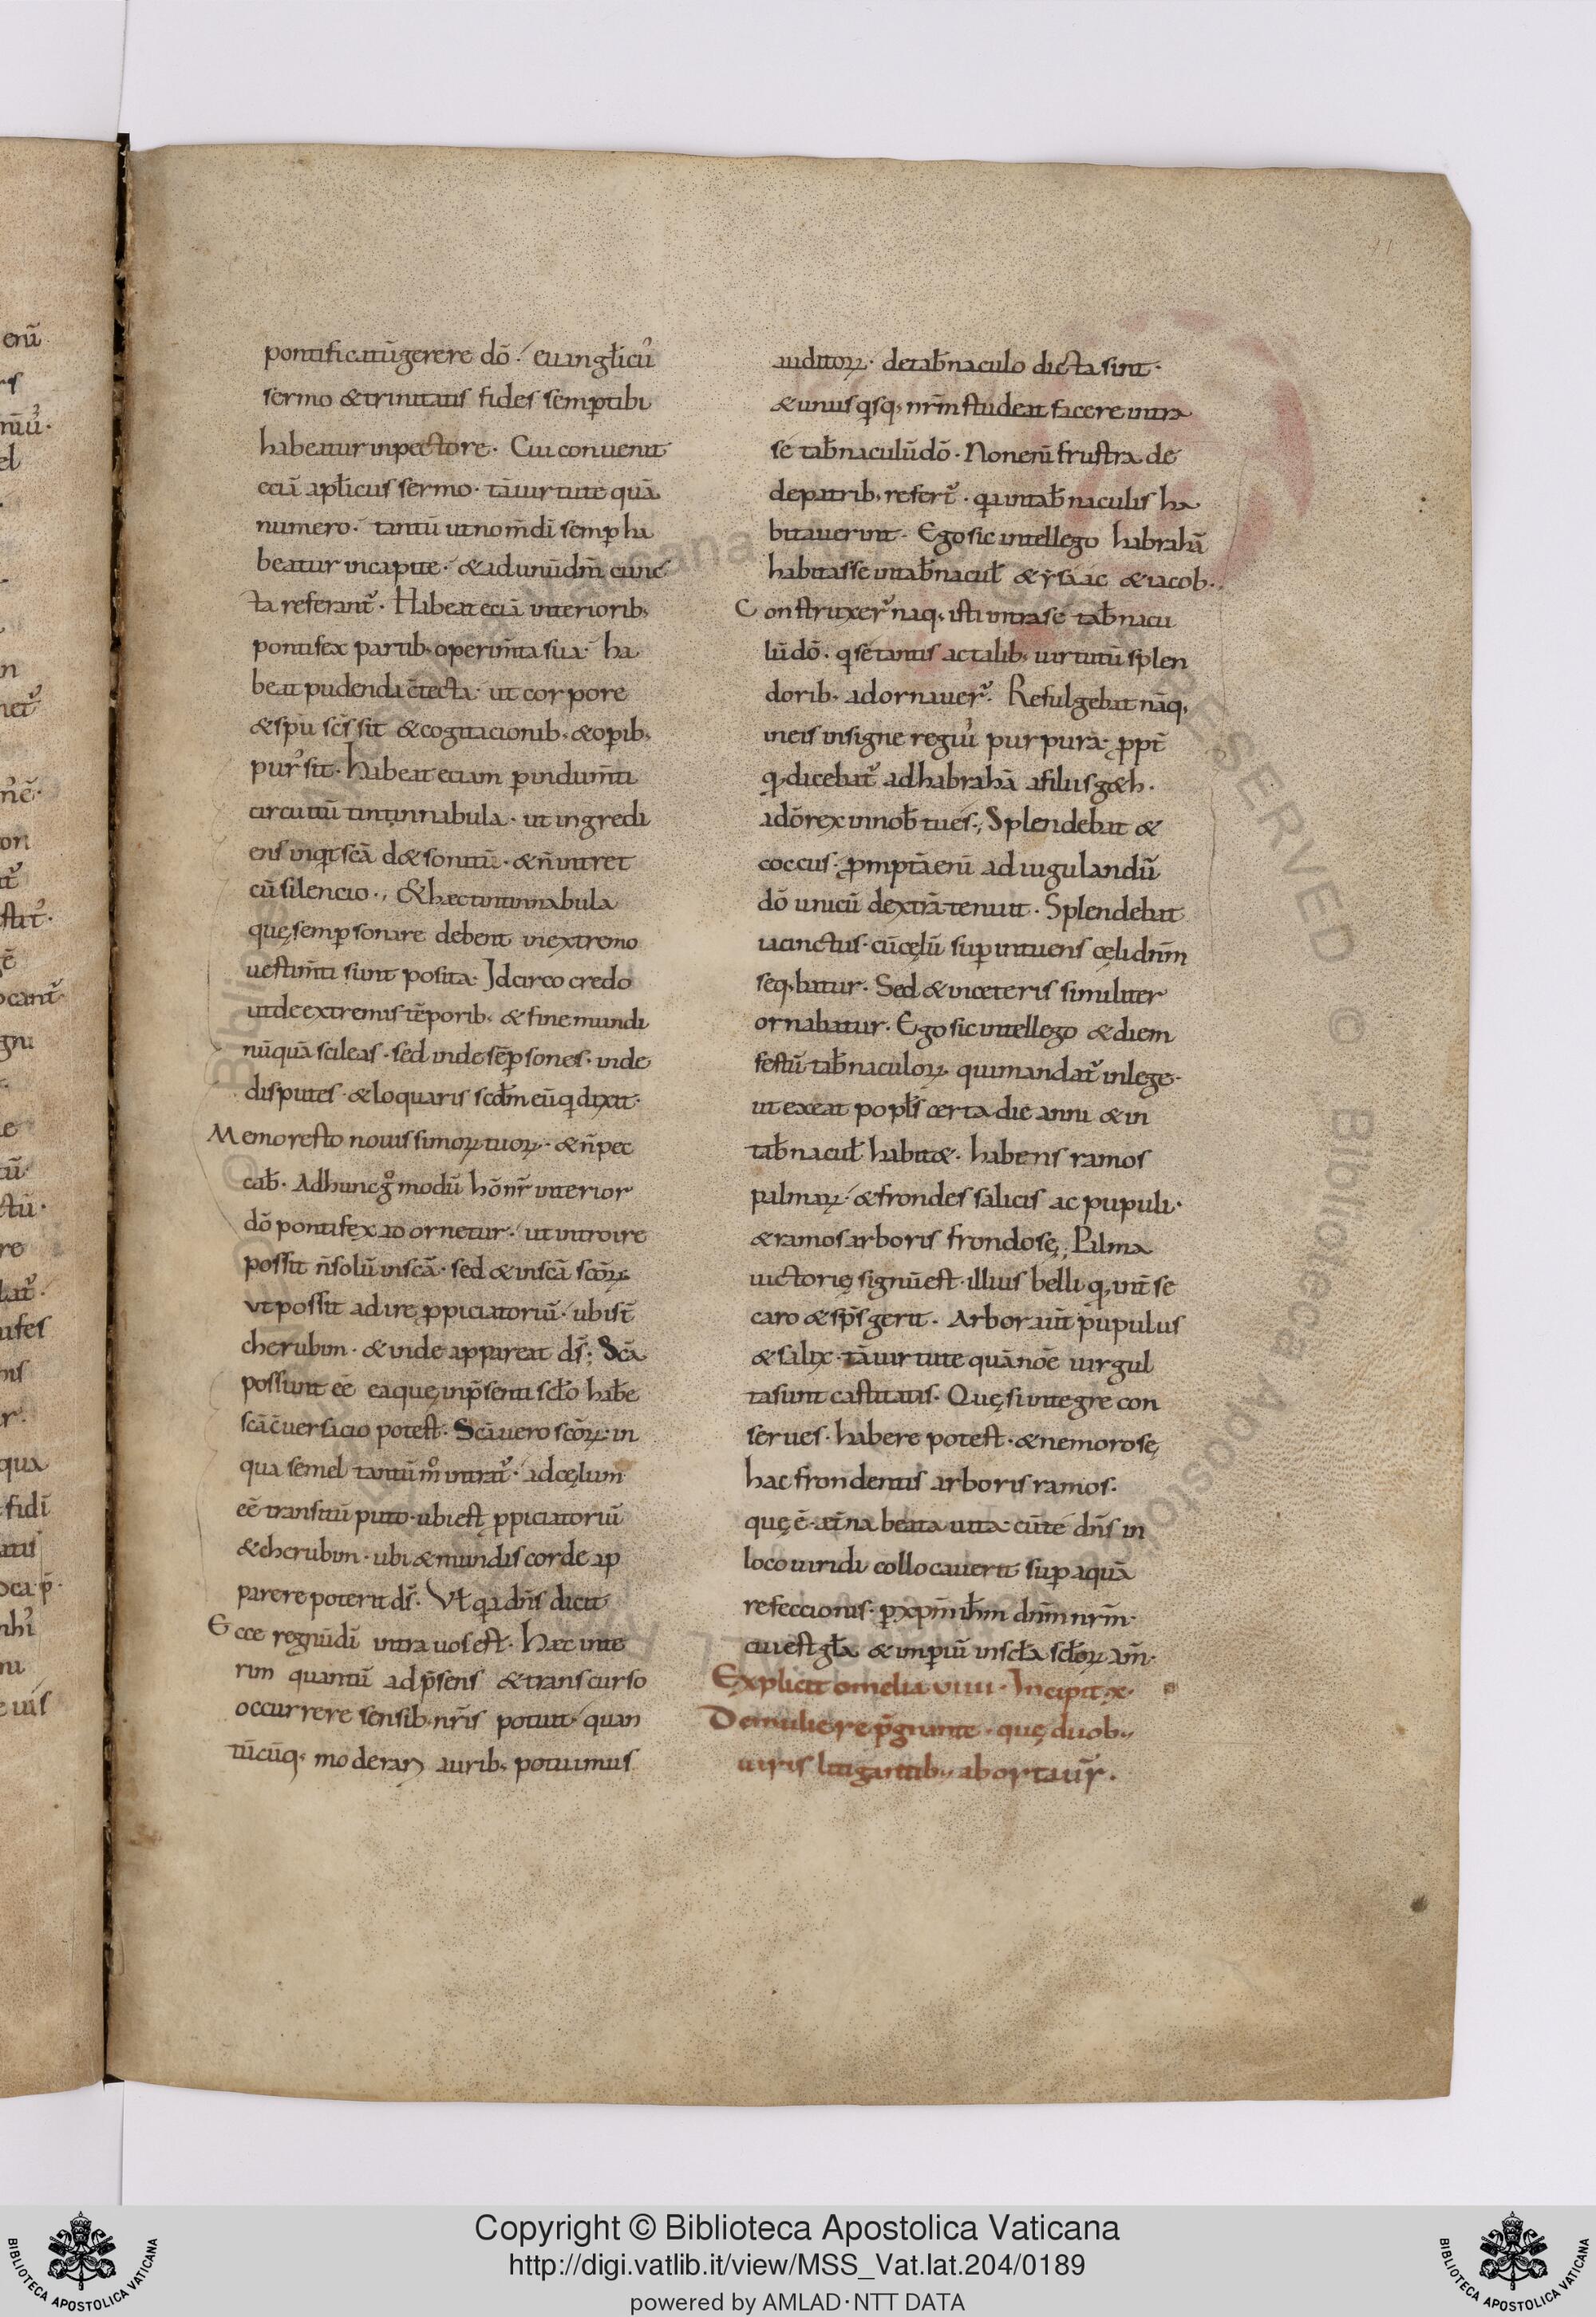 pontificatū gerere dō. euangl̄icu᷒
sermo & trinitatis fides semp̲ tibi
habeatur in pectore. Cui conuenit
eciā apl̄icus sermo. tā uirtute quā
numero. tantū ut nom̄ di semp̲ ha
beatur in capite. & ad unū dm̄ cunc
ta referant᷒. Habeat eciā interiorib;
pontifex partib; operim̄ta sua. ha
beat pudenda c̄tecta. ut corpore
& sp̄u sc̄s sit & cogitacionib; & op̲ib;
pur᷒ sit. Habeat eciam p̲ indum̄ti
circuitū tintinnabula. ut ingredi
ens inqt sc̄ā d& sonitū. & n̄ intret
cū silencio., & hec tintinnabula
quę semp̲ sonare debent in extremo
uestim̄ti sunt posita. Idcirco credo
ut de extremis tēporib; & fine mundi
nūquā scileas. sed inde sēp̲ sones. inde
disputes. & loquaris scdm̄ eū q dixit.
Memor esto nouissimoꝝ tuoꝝ. & n̄ pec
cab̄. Ad hunc g̊ modū hō nr̄ interior
dō pontifex adornetur. ut introire
possit n̄ solū in scā. sed & in scā scōꝝ
ut possit adire ꝓpiciatoriū. ubi st̄
cherubin. & inde appareat ds̄; Sc̄a
possunt eē ea quę in p̄senti sclō hab̄e
scā c̄uersacio potest. Scā uero scōꝝ. in
qua semel tantūm̊ intrat᷒. ad cęlum
eē transitū puto. ubi est ꝓpiciatoriū
& cherubin. ubi & mundis corde ap
parere poterit ds̄. Vł qa dn̄s dicit
Ecce regnū dī intra uos est. Hęc inte
rim quantū ad p̄sens & transcurso
occurrere sensib; nr̄is potuit. quan
tūcūq; moderari aurib; potuimus
auditoꝝ. de tab̄naculo dicta sint.
& unusqsq; nr̄m studeat facere intra
se tab̄naculū dō. Non enī frustra de
de patrib; refert᷒. qa in tab̄naculis ha
bitauerint. Ego sic intellego habrahā
habitasse in tab̄nacul̄ & ysaac & iacob.
Construxer᷒ naq; isti intra se tab̄nacu
lū dō. q se tantis ac talib; uirtutū splen
dorib; adornauer᷒. Refulgebat nāq;
in eis insigne regiu᷒ purpura. ꝓpt̄
q dicebat᷒ ad habrahā a filiis g&h.
a dō rex in nob̄ tu es., Splendebat &
coccus. ꝓmptā enī ad iugulandū
dō unicū dextrā tenuit. Splendebat
iacinctus. cū cęlū sup̲ intuens cęli dnm̄
seq;batur. Sed & in ceteris similiter
ornabatur. Ego sic intellego & diem
festū tab̄naculoꝝ. qui mandat᷒ in lege.
ut exeat popl̄s certa die anni & in
tab̄nacul̄ habit&. habens ramos
palmaꝝ. & frondes salicis ac pupuli.
& ramos arboris frondosę., Palma
uictorię signū est. illius belli q; int̄ se
caro & sp̄s gerit. Arbor aut̄ pupulus
& salix. tā uirtute quā noē uirgul
ta sunt castitatis. Quę si integre con
serues. habere potest. & nemorosę
hac frondentis arboris ramos.
quę ē ęt̄na beata uita. cū te dn̄s in
loco uiridi collocauerit sup̲ aquā
refeccionis. p̲ xp̄m ih̄m dnm̄ nr̄m.
cui est gl̄a & imp̲iū in scl̄a scl̄oꝝ am̄.
Explicit omelia viiii. Incipit x.
De muliere p̄gnante. quę duob;
uiris litigantib; abortaur̄.
Copyright © Biblioteca Apostolica Vaticana
http://digi.vatlib.it/view/MSS_Vat.lat.204/0189
powered by AMLAD·NTT DATA